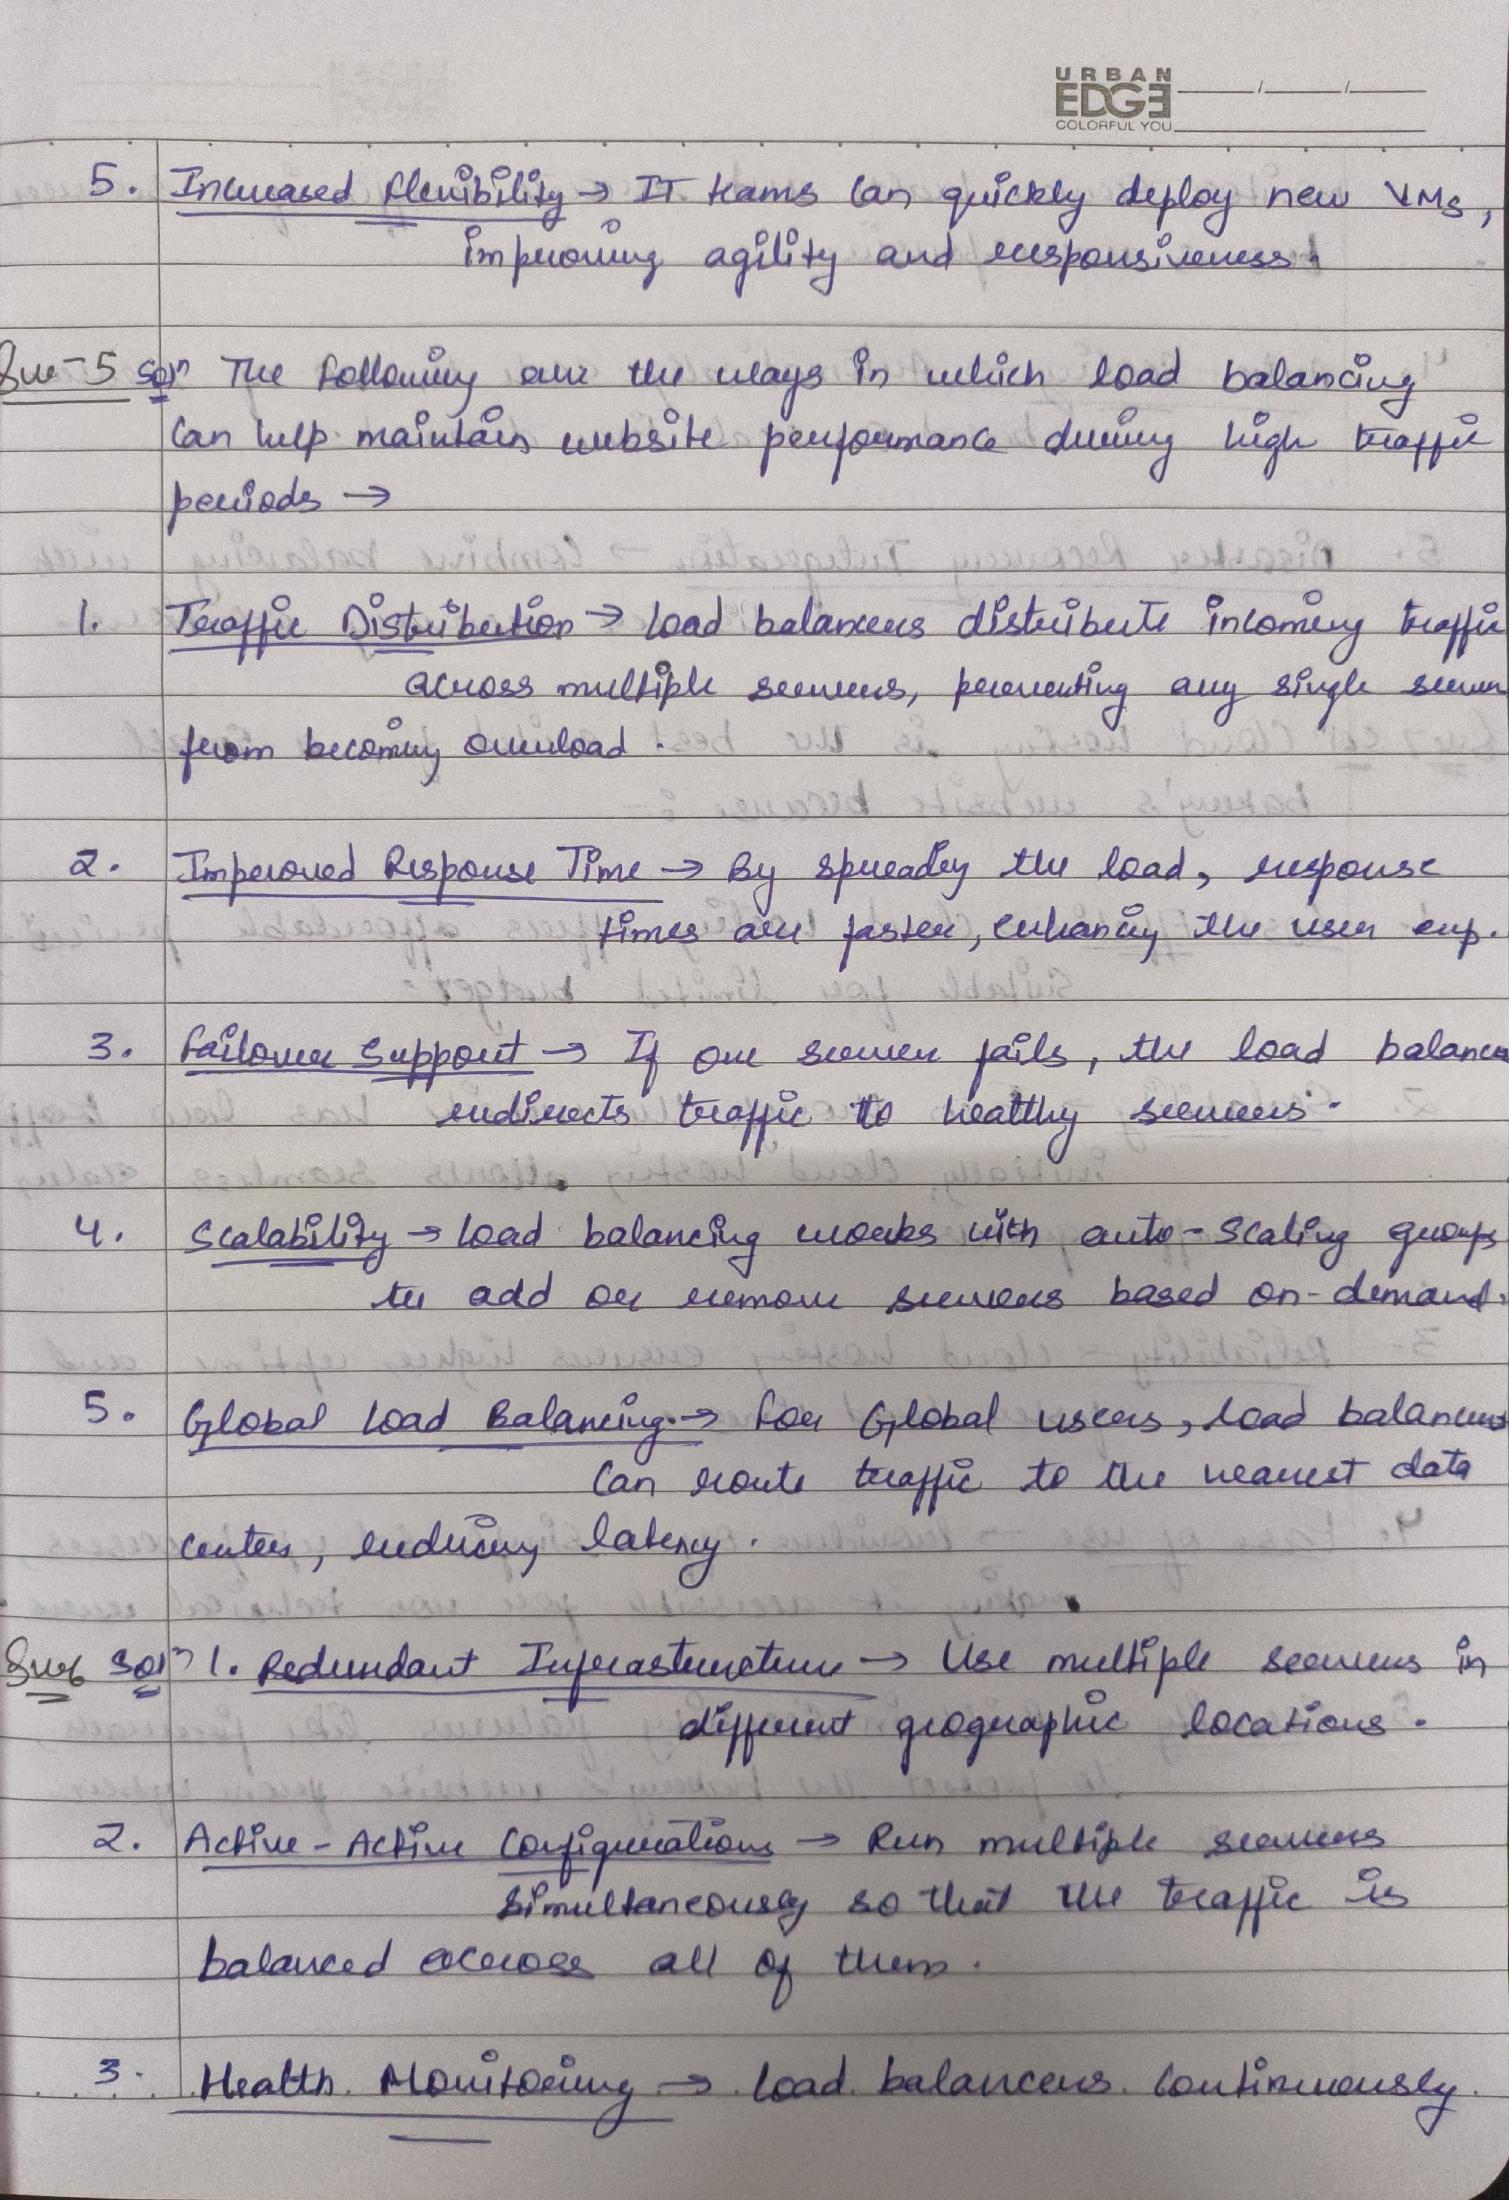 URBAN
EDGE
COLORFUL YOU
5. Increased Flexibility → IT teams can quickly deploy new VMs,
improving agility and responsiveness.
Que-5 Solⁿ The following are the ways in which load balancing
can help maintain website performance during high traffic
periods →
1. Traffic Distribution → Load balancers distribute incoming traffic
across multiple servers, preventing any single server
from becoming overload.
2. Improved Response Time → By spreading the load, response
times are faster, enhancing the user exp.
3. Failover Support → If one server fails, the load balancer
redirects traffic to healthy servers.
4. Scalability → Load balancing works with auto-scaling groups
to add or remove servers based on-demand.
5. Global Load Balancing → For Global users, load balancers
can route traffic to the nearest data
centers, reducing latency.
Que6 Solⁿ 1. Redundant Infrastructure → Use multiple servers in
different geographic locations.
2. Active-Active Configurations → Run multiple servers
simultaneously so that the traffic is
balanced across all of them.
3. Health Monitoring → Load balancers continuously